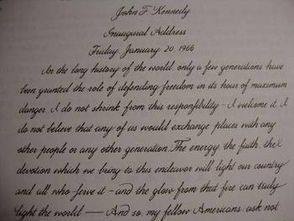 John F. Kennedy
Inaugural Address
Friday January 20, 1966
In the long history of the world only a few generations have
been granted the role of defending freedom in its hour of maximum
danger. I do not shrink from this responsibility – I welcome it. I
do not believe that any of us would exchange places with any
other people or any other generation. The energy, the faith, the
devotion which we bring to this endeavor will light our country
and all who serve it – and the glow from that fire can truly
light the world — And so, my fellow Americans ask not